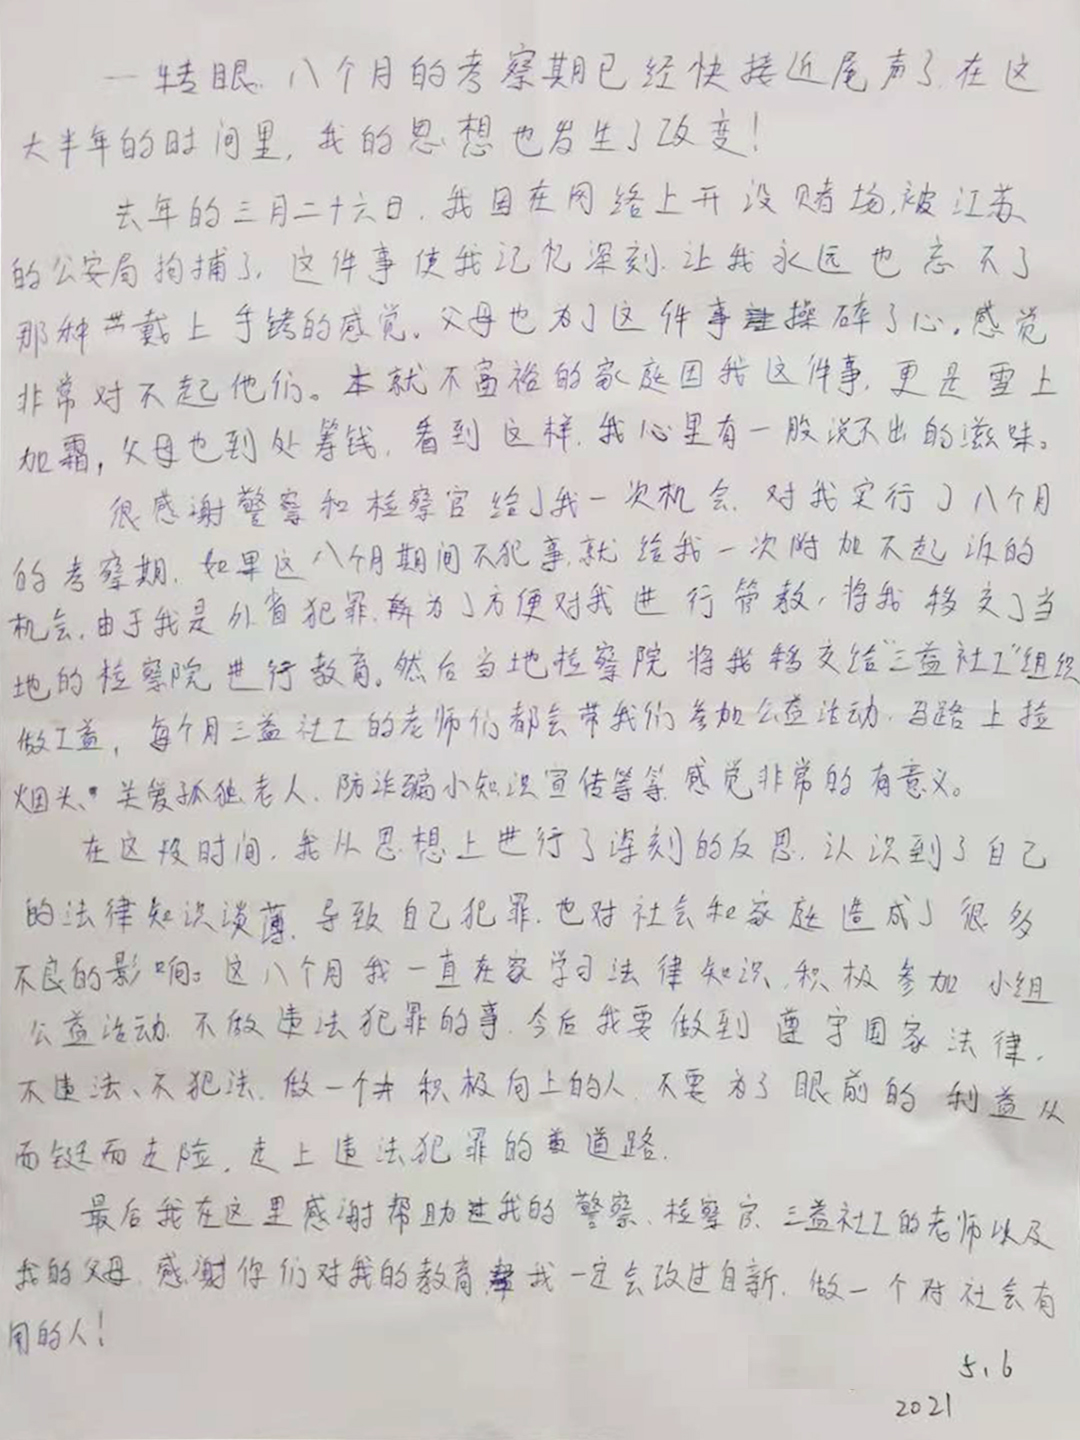 一转眼,八个月的考察期已经快接近尾声了,在这
大半年的时间里,我的思想也发生了改变!
去年的三月二十六日,我因在网络上开设赌场,被江苏
的公安局拘捕了,这件事使我记忆深刻,让我永远也忘不了
那种戴上手铐的感觉。父母也为了这件事操碎了心。感觉
非常对不起他们。本就不富裕的家庭因我这件事,更是雪上
加霜,父母也到处筹钱,看到这样,我心里有一股说不出的滋味。
很感谢警察和检察官给了我一次机会,对我实行了八个月
的考察期,如果这八个月期间不犯事,就给我一次附加不起诉的
机会,由于我是外省犯罪,为了方便对我进行管教,将我移交了当
地的检察院进行教育。然后当地检察院将我移交给“三益社工”组织
做工益,每个月三益社工的老师们都会带我们参加公益活动,马路上捡
烟头、关爱孤独老人、防诈骗小知识宣传等等,感觉非常的有意义。
在这段时间,我从思想上进行了深刻的反思,认识到了自己
的法律知识淡薄,导致自己犯罪,也对社会和家庭造成了很多
不良的影响。这八个月我一直在家学习法律知识,积极参加小组
公益活动,不做违法犯罪的事,今后我要做到遵守国家法律,
不违法、不犯法,做一个积极向上的人,不要为了眼前的利益从
而铤而走险,走上违法犯罪的道路.
最后我在这里感谢帮助过我的警察、检察官、三益社工的老师以及
我的父母,感谢你们对我的教育,我一定会改过自新,做一个对社会有
用的人!
5.6
2021